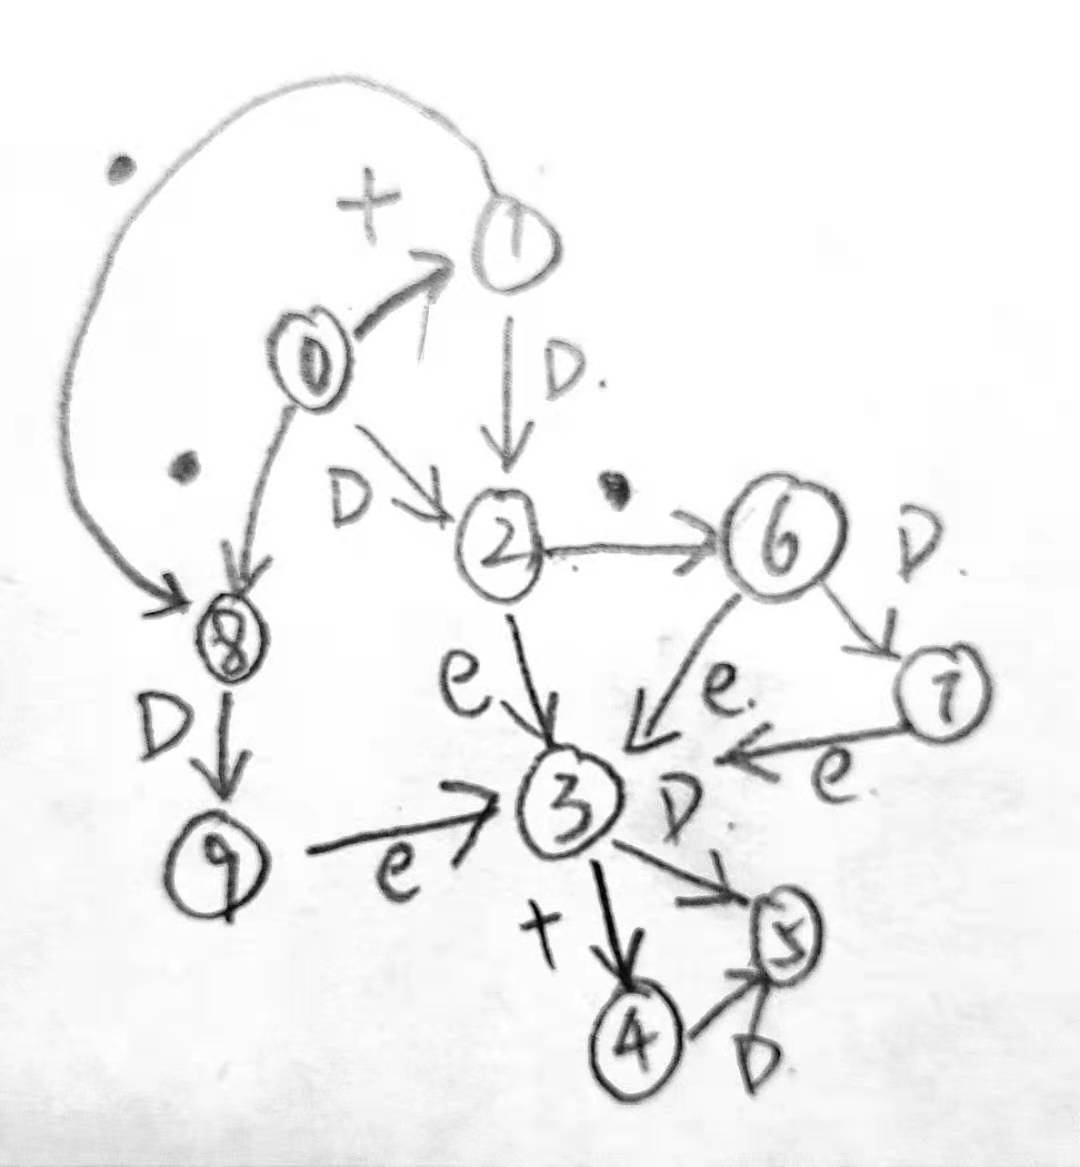 •
+
1
0
D.
•
D
•
2
6
D.
8
e
e.
7
D
e.
3
D.
9
e
+
5
4
D.